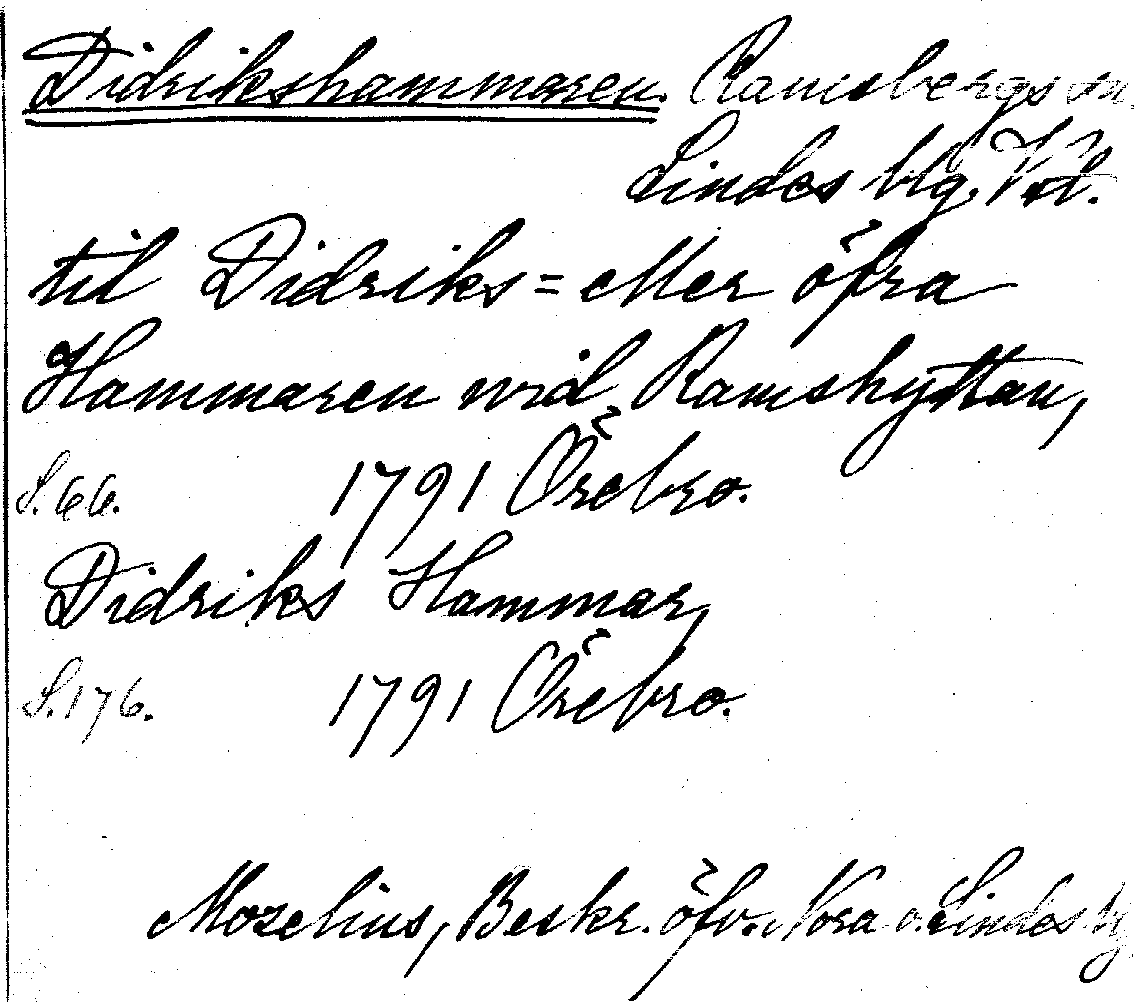 Didrikshammaren. Ramsbergs sn.
Lindes blg. Vstl.
til Didriks= eller öfra
Hammaren wid Ramshyttan,
S. 66. 1791 Örebro.
Didriks Hammar,
S. 176. 1791 Örebro.
Mozelius, Beskr. öfv. Nora o. Lindes